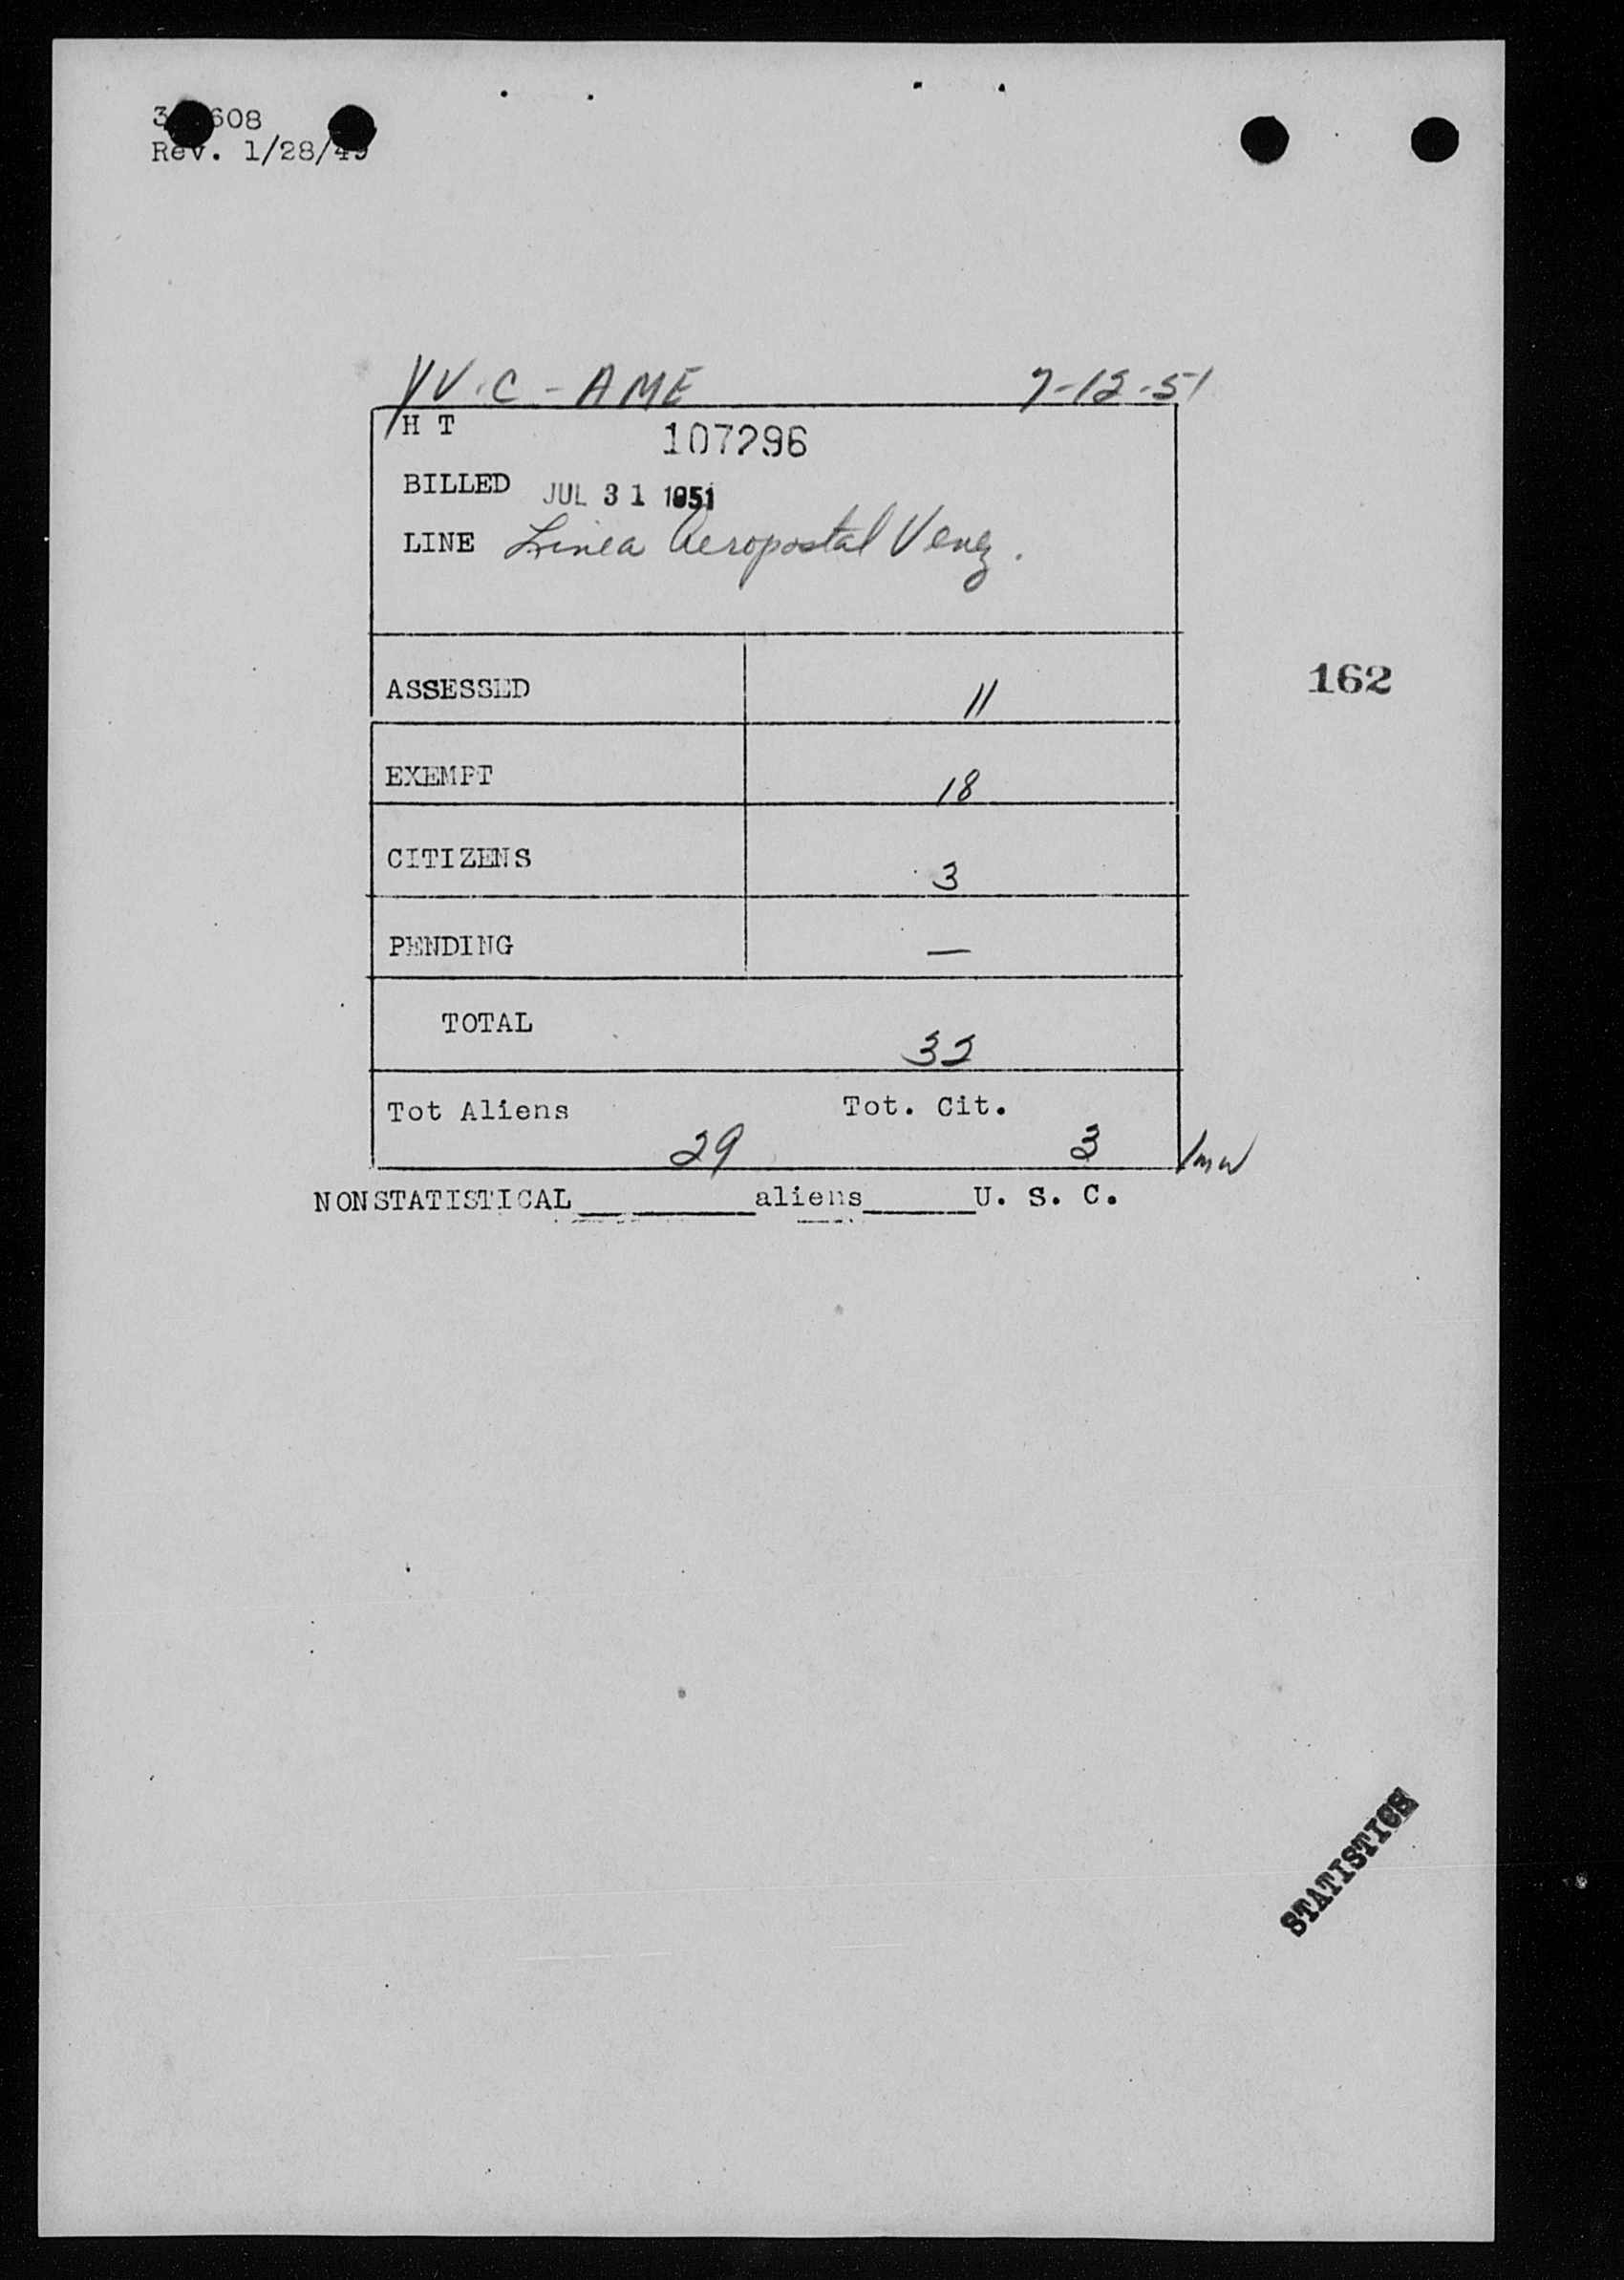 608
Rev. 1/28/49
YV-C-AME 7-12-51
H T 107296
BILLED JUL 31 1951
LINE Linea Aeropostal Venez.
ASSESSED 11
162
EXEMPT 18
CITIZENS 3
PENDING —
TOTAL 32
Tot Aliens 29 Tot. Cit. 3
NONSTATISTICAL______aliens____U. S. C.
STATISTICS